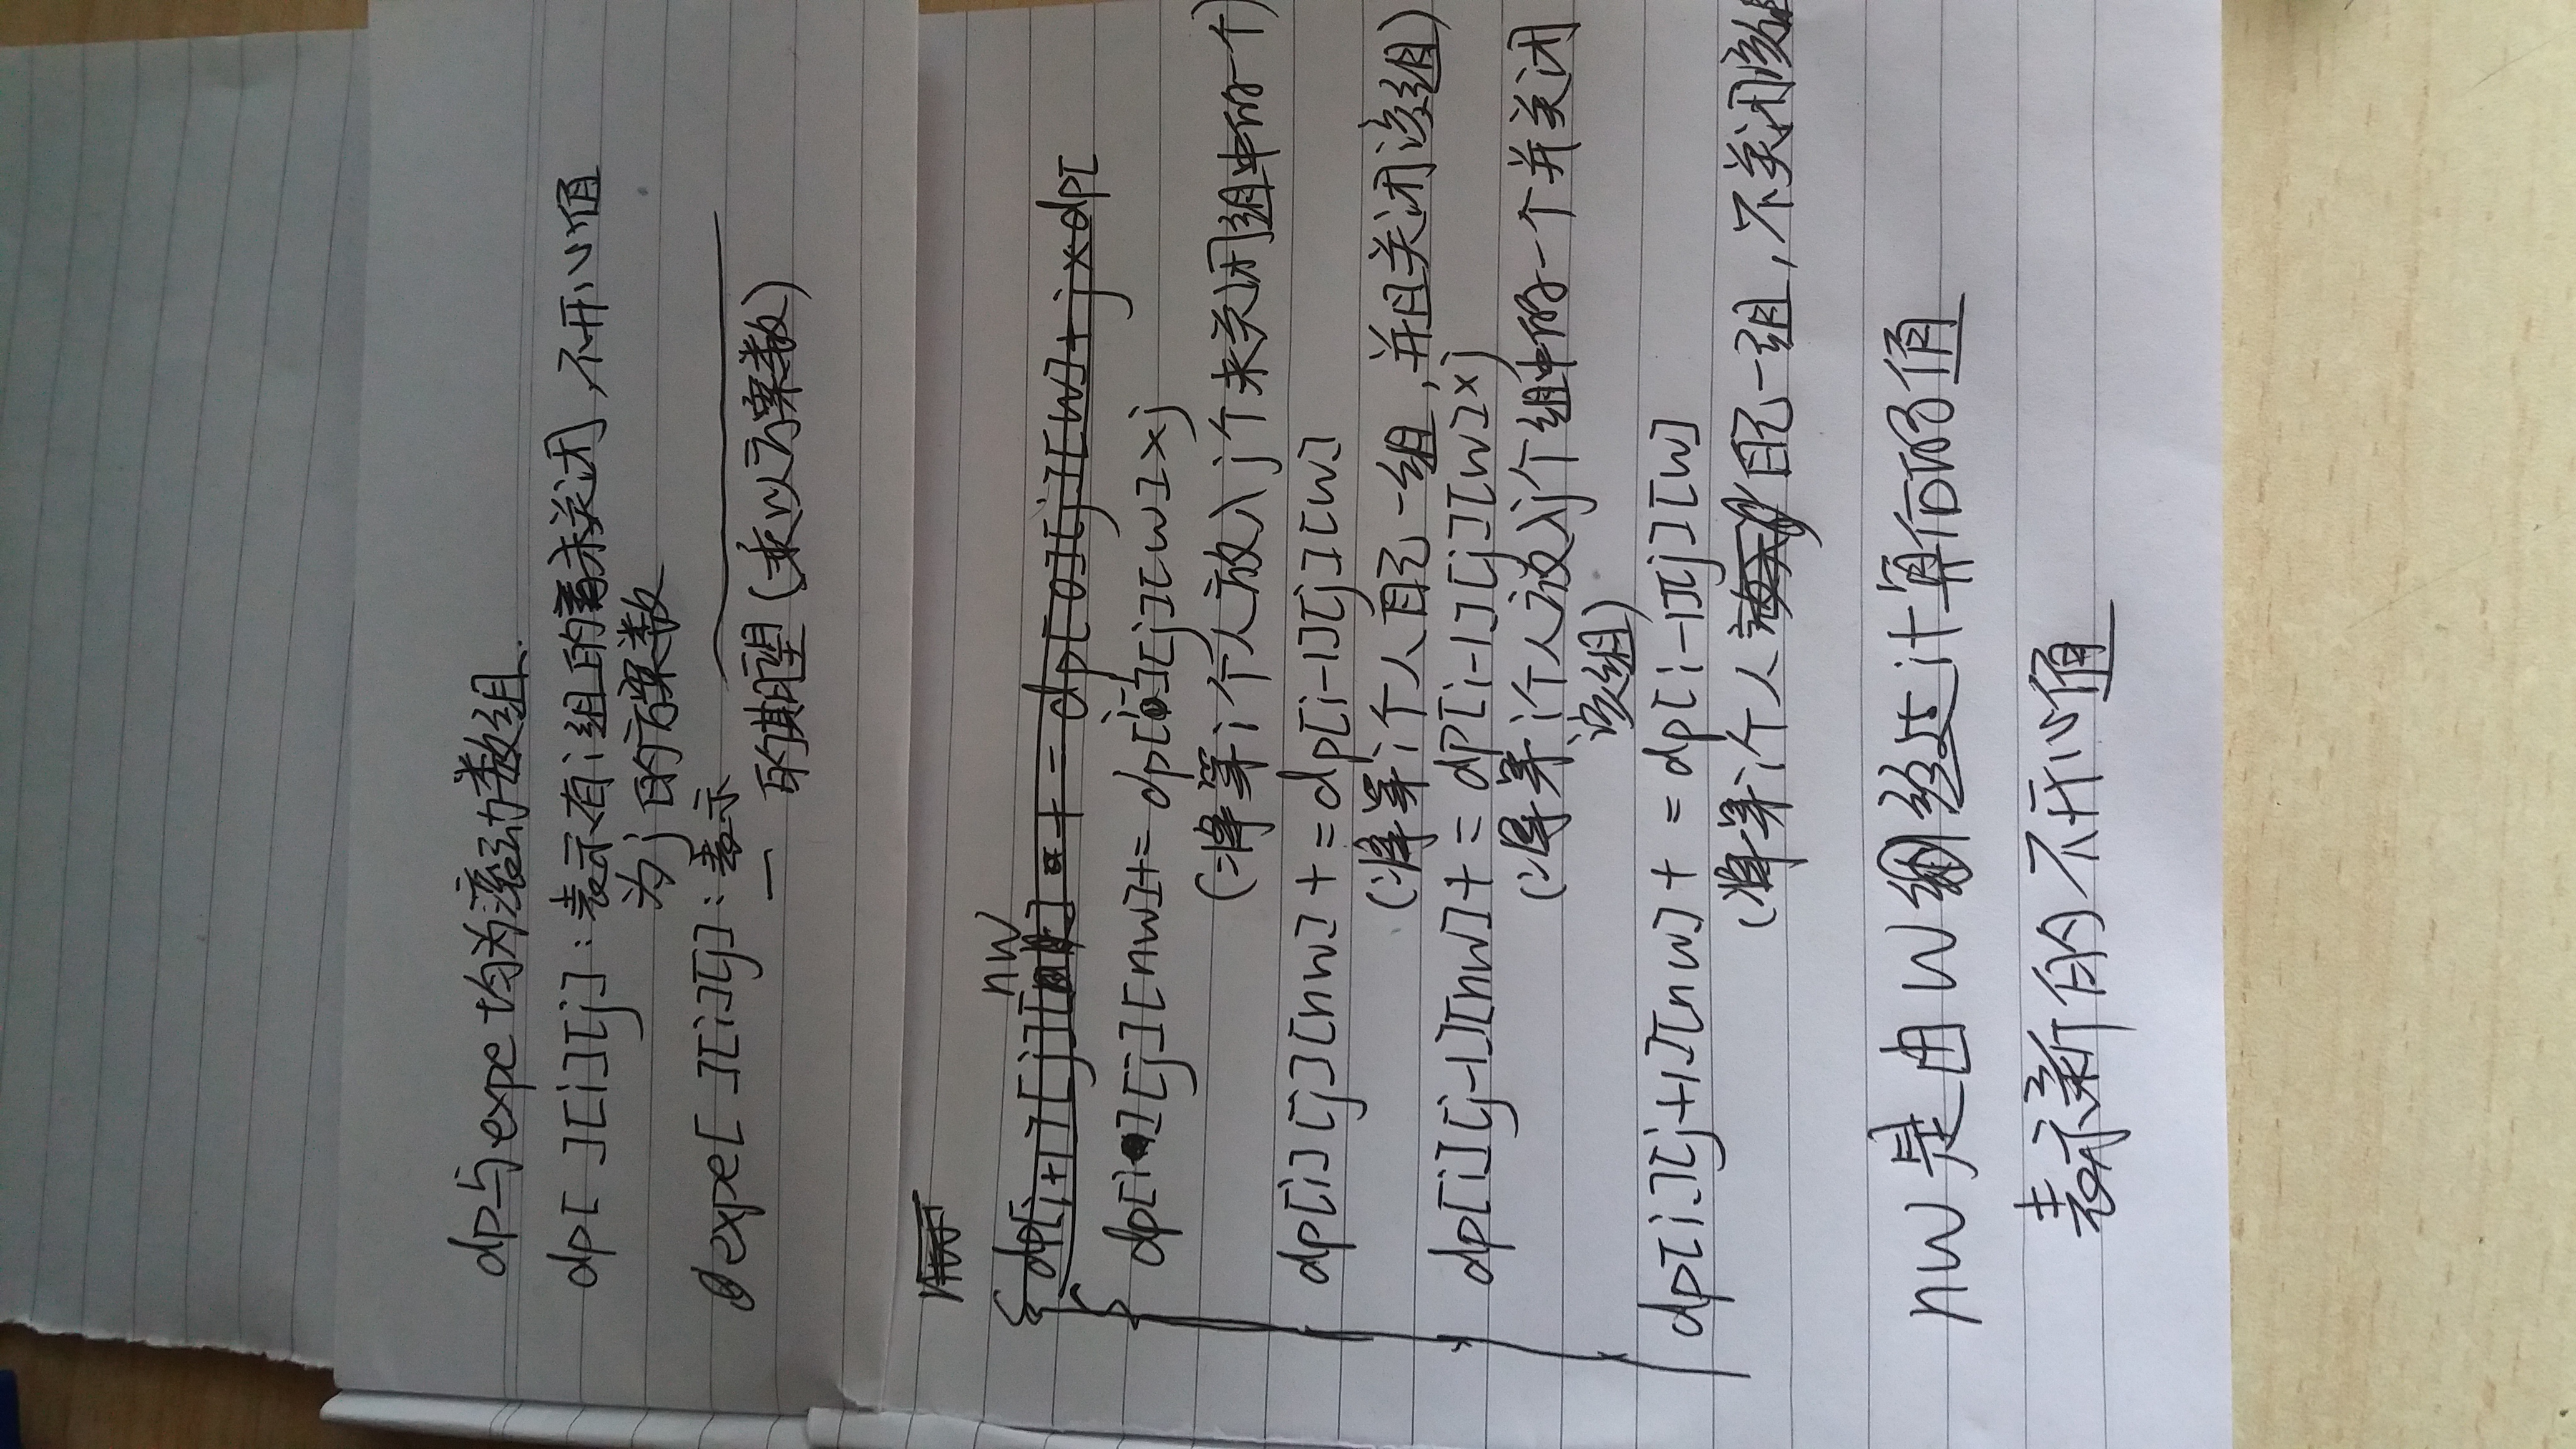 dp与expe均为滚动数组.
dp[ ][i][j]:表示有i组的未关闭,不开心值
为j的方案数
expe[ ][i][j]:表示
一的期望(乘以方案数)
nw
dp[i+1][j] += dp[0][j][w]+j×dp[
dp[i][j][nw]+= dp[i-1][j][w]×j
(将第i个人放入j个未关闭组中的一个)
dp[i][j][nw]+=dp[i-1][j][w]
(将第i个人自己一组,并且关闭该组)
dp[i][j-1][nw]+=dp[i-1][j][w]×j
(将第i个人放入j个组中的一个并关闭
该组)
dp[i][j+1][nw]+=dp[i-1][j][w]
(将第i个人自己一组,不关闭该
nw是由w经过计算后的值
表示新的不开心值